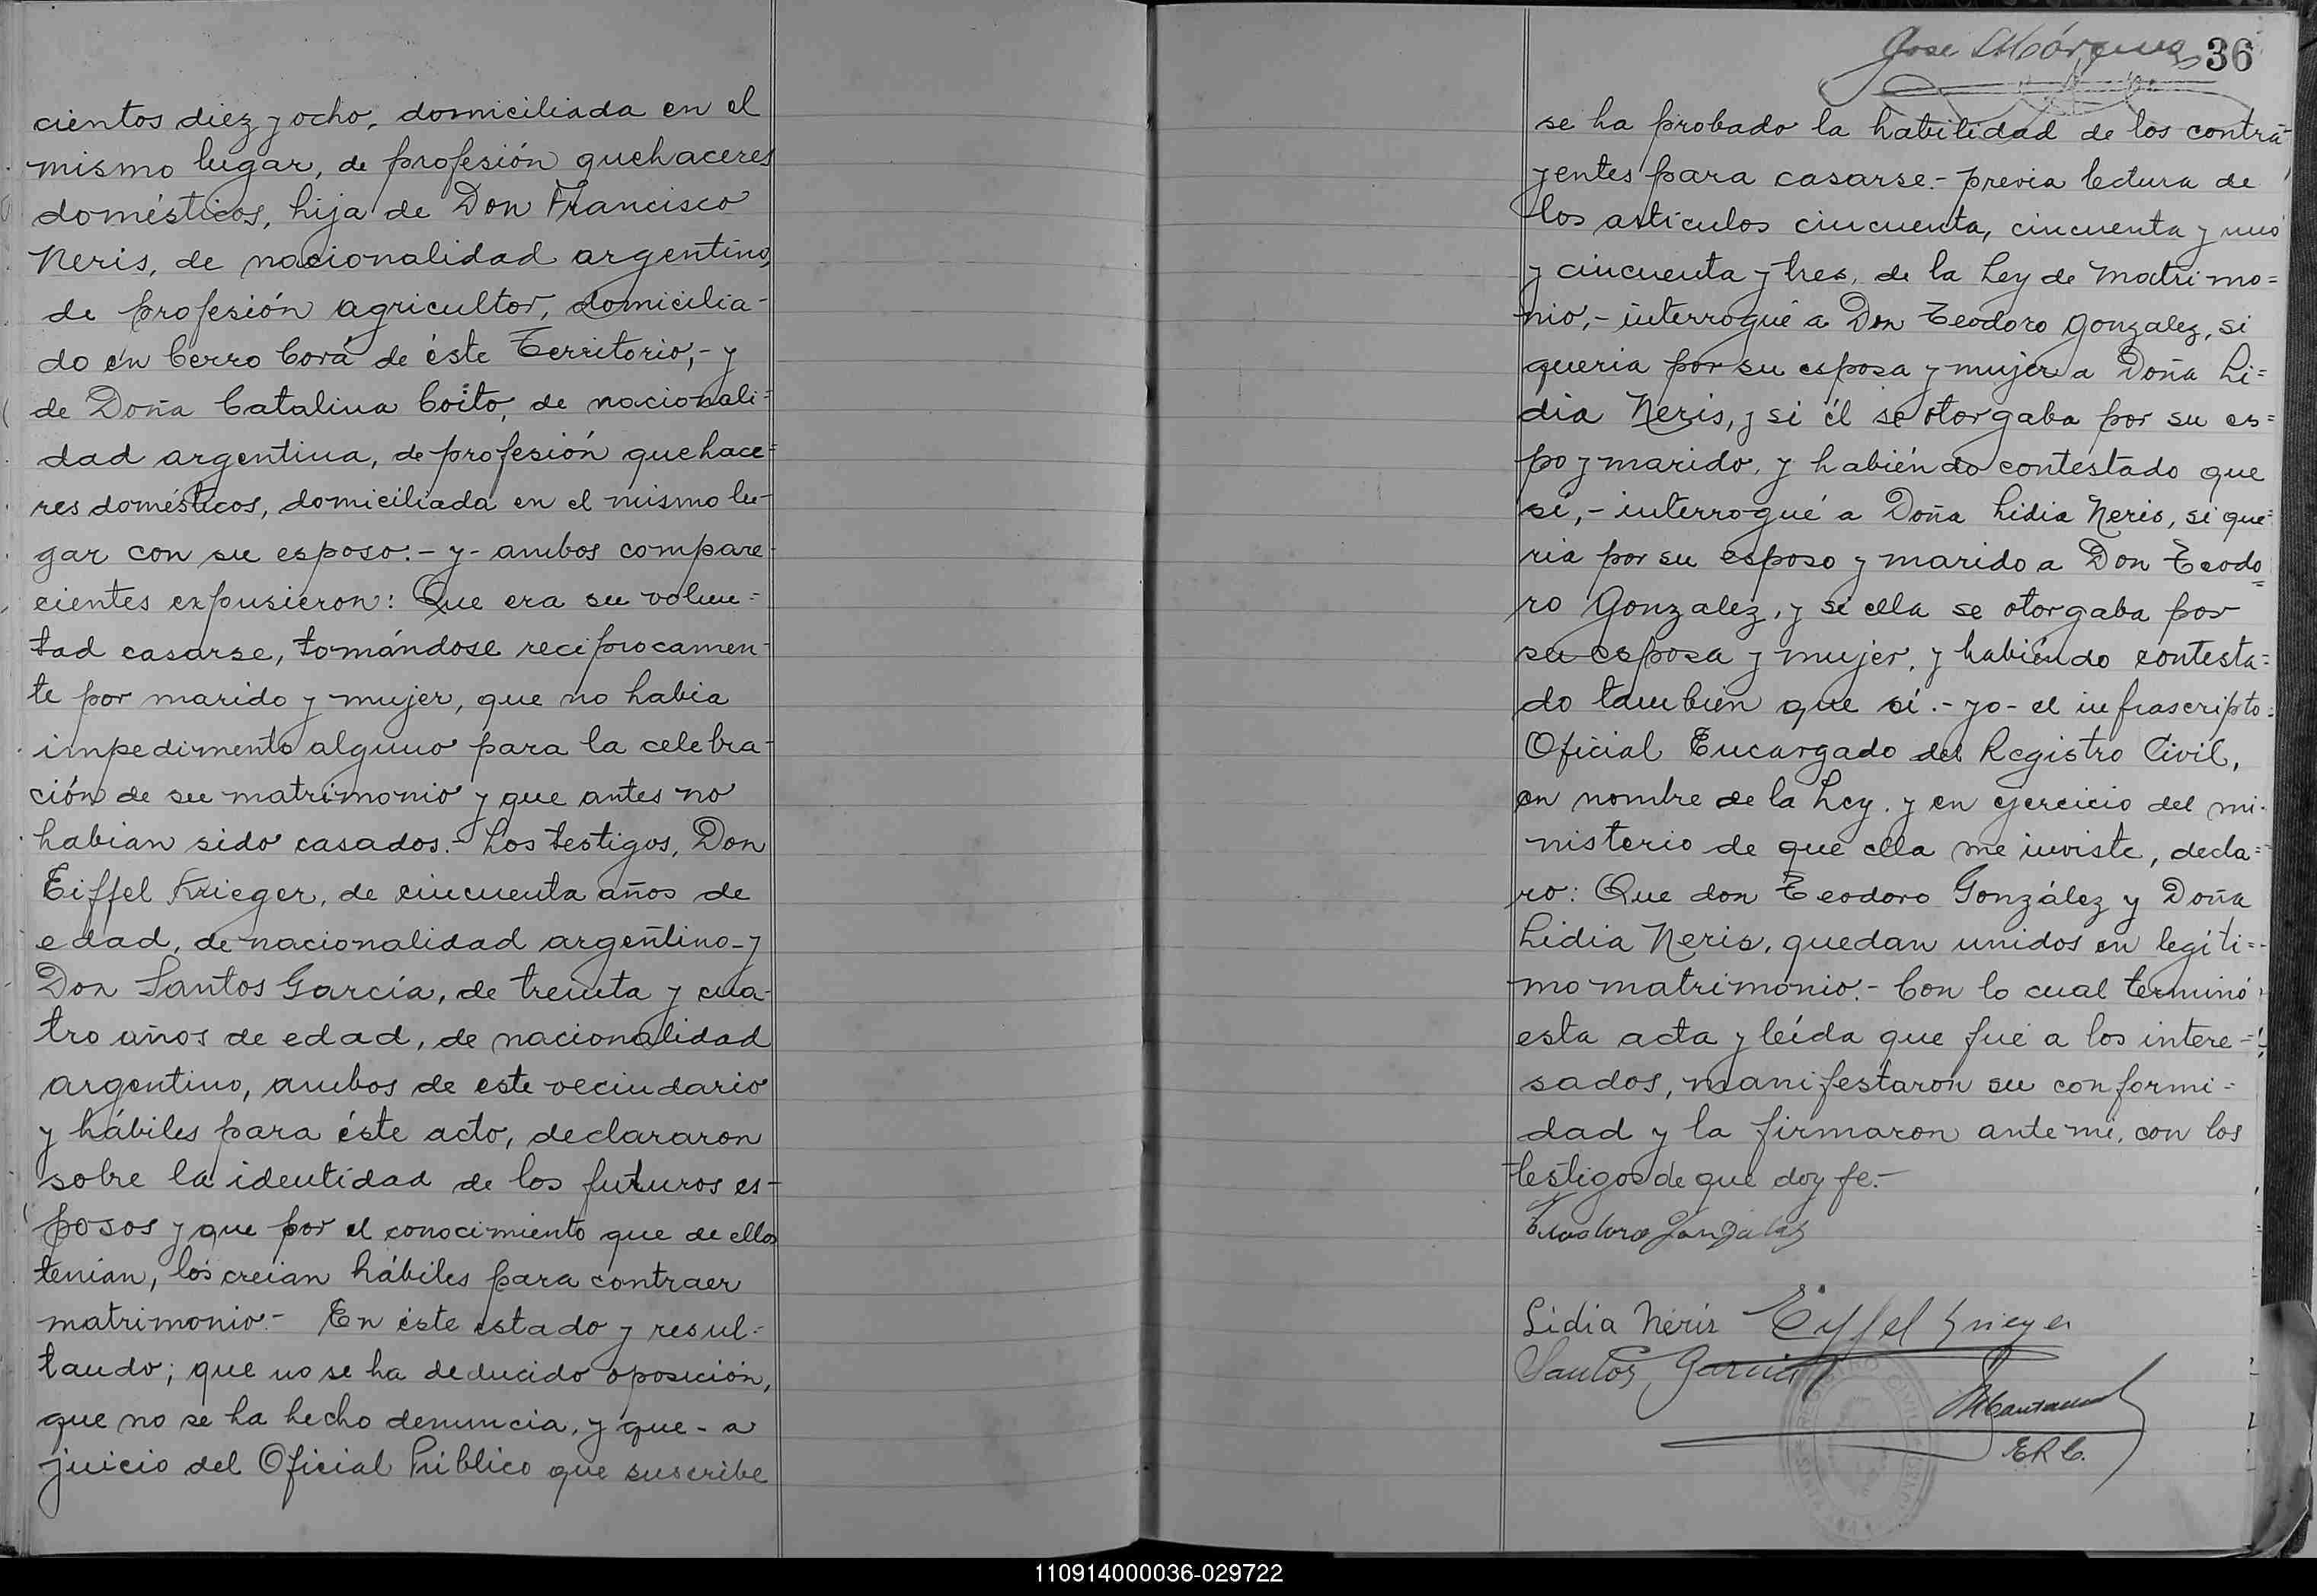 cientos diez y ocho, domiciliada en el
mismo lugar, de profesión quehaceres
domésticos, hija de Don Francisco
Neris, de nacionalidad argentino,
de profesión agricultor, domicilia-
do en Cerro Corá de éste Territorio,- y
de Doña Catalina Coito, de nacionali=
dad argentina, de profesión quehace=
res domésticos, domiciliada en el mismo lu-
gar con su esposo:- y- ambos compare-
cientes expusieron: Que era su volun=
tad casarse, tomándose reciprocamen-
te por marido y mujer, que no habia
impedimento alguno para la celebra-
ción de su matrimonio y que antes no
habian sido casados.- Los testigos, Don
Eiffel Krieger, de cincuenta años de
edad, de nacionalidad argentino- y
Don Santos García, de treinta y cua-
tro años de edad, de nacionalidad
argentino, ambos de este vecindario
y hábiles para éste acto, declararon
sobre la identidad de los futuros es-
posos y que por el conocimiento que de ellos
tenian, los creian hábiles para contraer
matrimonio.- En éste estado y resul=
tando; que no se ha deducido oposición,
que no se ha hecho denuncia, y que- a
juicio del Oficial Público que suscribe
Jose 36
se ha probado la habilidad de los contra-
yentes para casarse.- previa lectura de
los artículos cincuenta, cincuenta y uno
y cincuenta y tres, de la Ley de Matrimo=
nio,- interrogué a Don Teodoro Gonzalez, si
queria por su esposa y mujer a Doña Li=
dia Neris, y si él se otorgaba por su es=
po y marido, y habiéndo contestado que
sí,- interrogué a Doña Lidia Neris, si que=
ria por su esposo y marido a Don Teodo=
ro Gonzalez, y si ella se otorgaba por
su esposa y mujer, y habiéndo contesta=
do tambien que sí.- yo- el infrascripto=
Oficial Encargado del Registro Civil,
en nombre de la Ley, y en ejercicio del mi-
nisterio de que ella me inviste, decla=
ro: Que don Teodoro González y Doña
Lidia Neris, quedan unidos en legíti=
mo matrimonio.- Con lo cual terminó
esta acta y leída que fué a los intere=
sados, manifestaron su conformi=
dad y la firmaron ante mí, con los
testigos de que doy fe.-
Teodoro Gonzalez
Lidia Neris Eiffel Krieger
Santos Garcia
E.R.C.
REGISTRO CIVIL
110914000036-029722